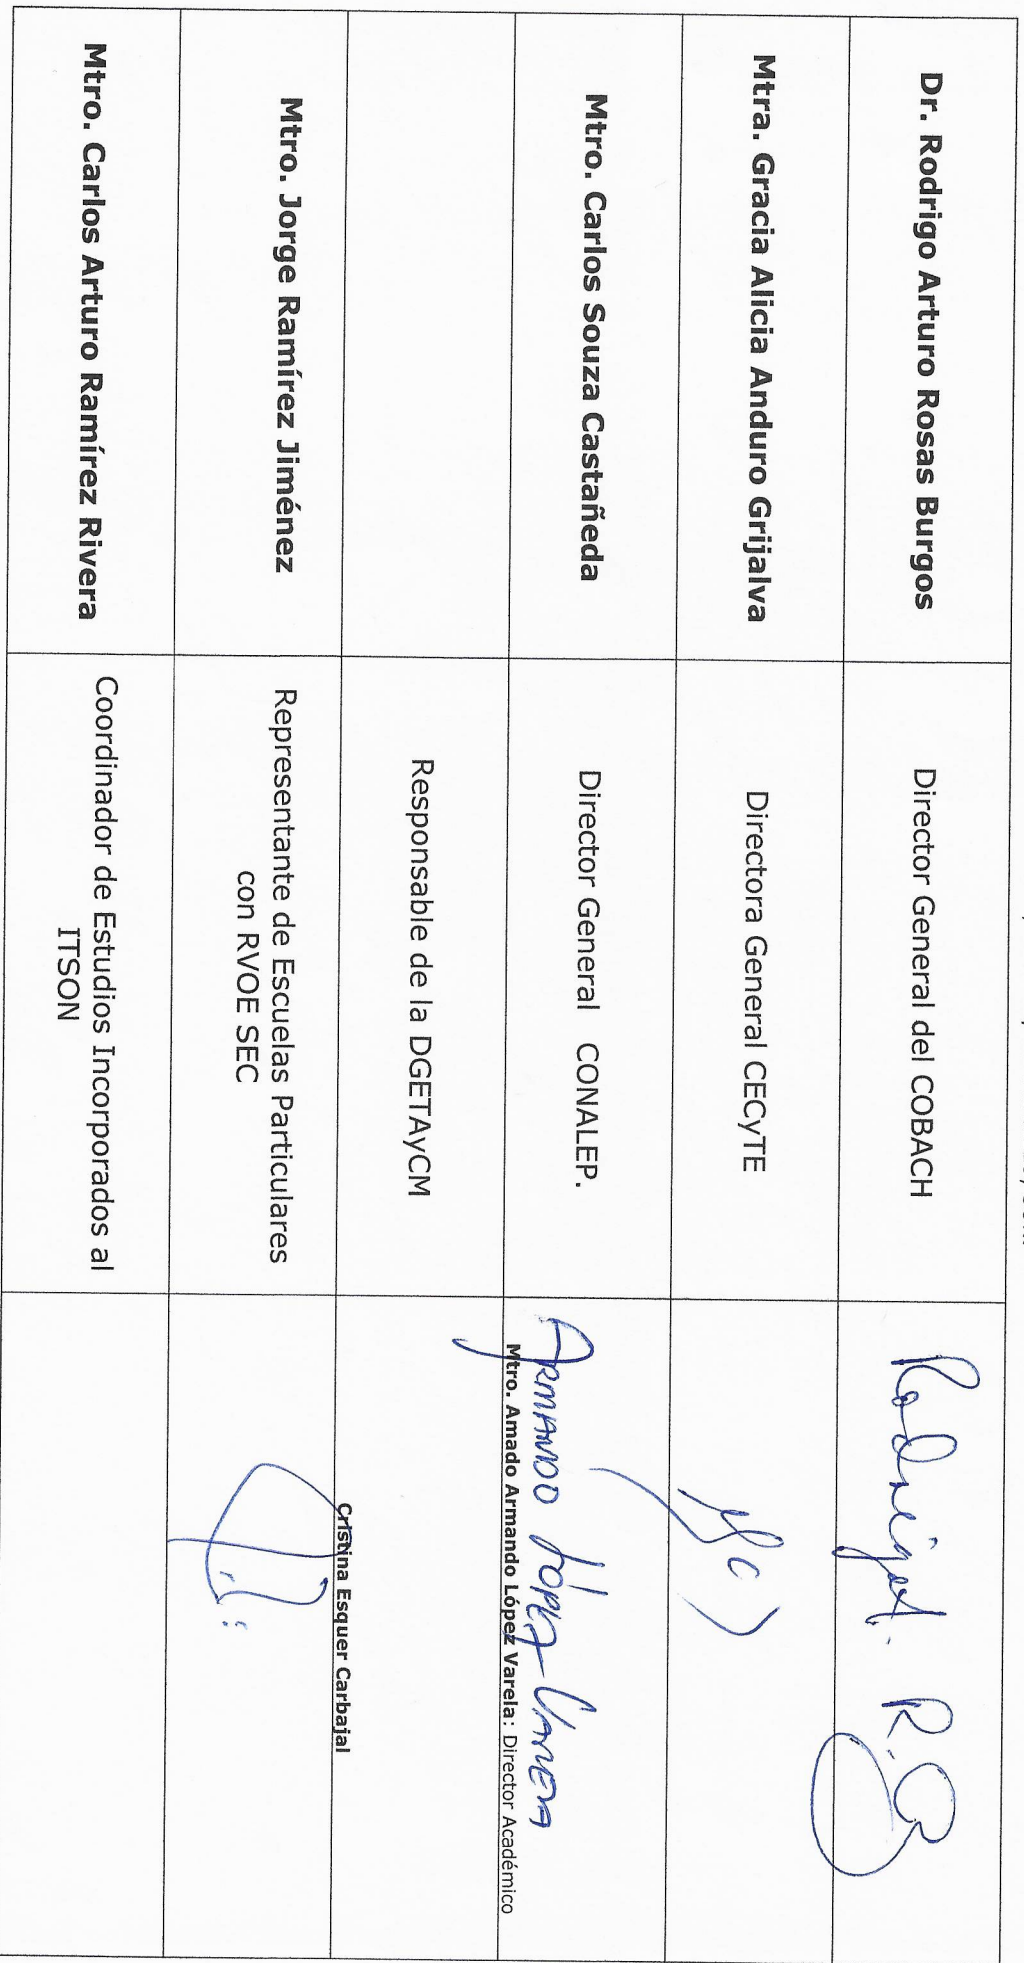 Dr. Rodrigo Arturo Rosas Burgos
Director General del COBACH
Rodrigo A. R. B
Mtra. Gracia Alicia Anduro Grijalva
Directora General CECyTE
Mtro. Carlos Souza Castañeda
Director General CONALEP.
ARMANDO LÓPEZ VARELA
Mtro. Amado Armando López Varela: Director Académico
Responsable de la DGETAyCM
Mtro. Jorge Ramírez Jiménez
Representante de Escuelas Particulares
con RVOE SEC
Cristina Esquer Carbajal
Mtro. Carlos Arturo Ramírez Rivera
Coordinador de Estudios Incorporados al
ITSON